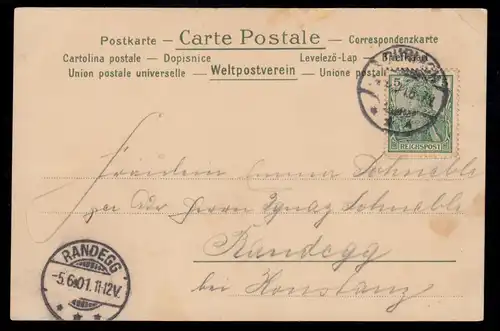 Postkarte – Carte Postale – Correspondenzkarte
Cartolina postale – Dopisnice Levelező-Lap –
Union postale universelle – Weltpostverein – Unione postale
REICHSPOST
Fräulein Emma Schneble
Herrn Ignaz Schneble
Randegg
bei Konstanz
RANDEGG
-5.6.01.11-12V.